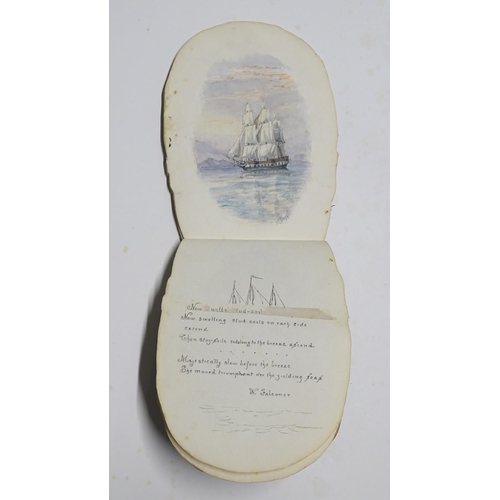 Now swelling stud-sails on each side
extend
Then stay-sails sidelong to the breeze
Majestically slow before the breeze
She moved triumphant on the yielding seas
W. Falconer